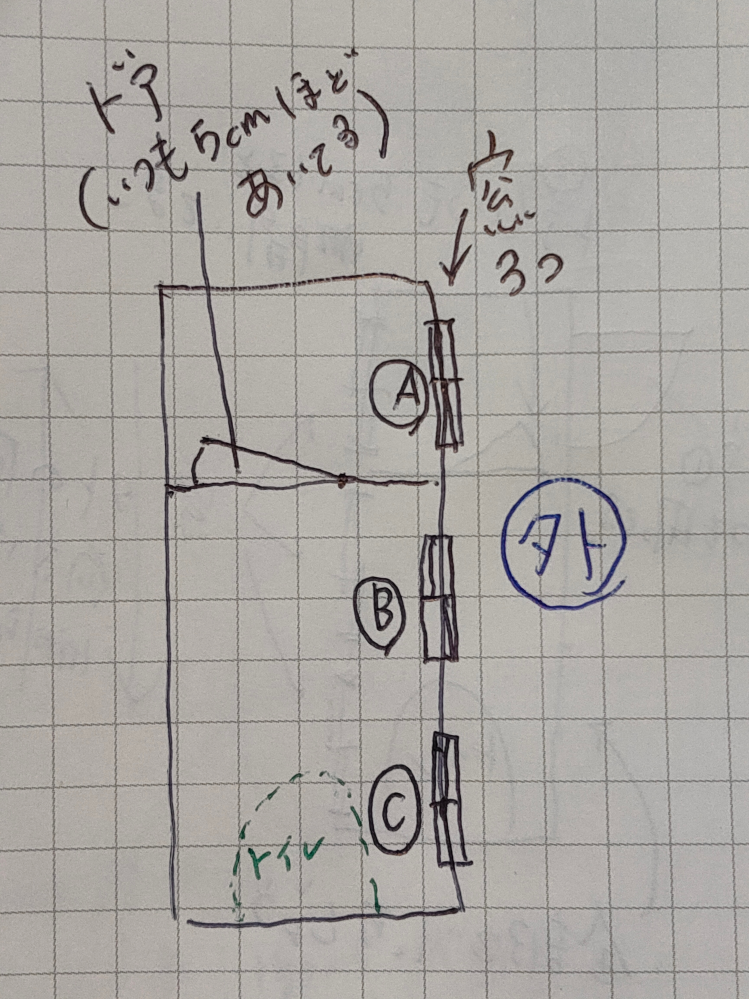 ドア
(いつも5cmほど
あいてる)
窓
3つ
A
外
B
C
トイレ